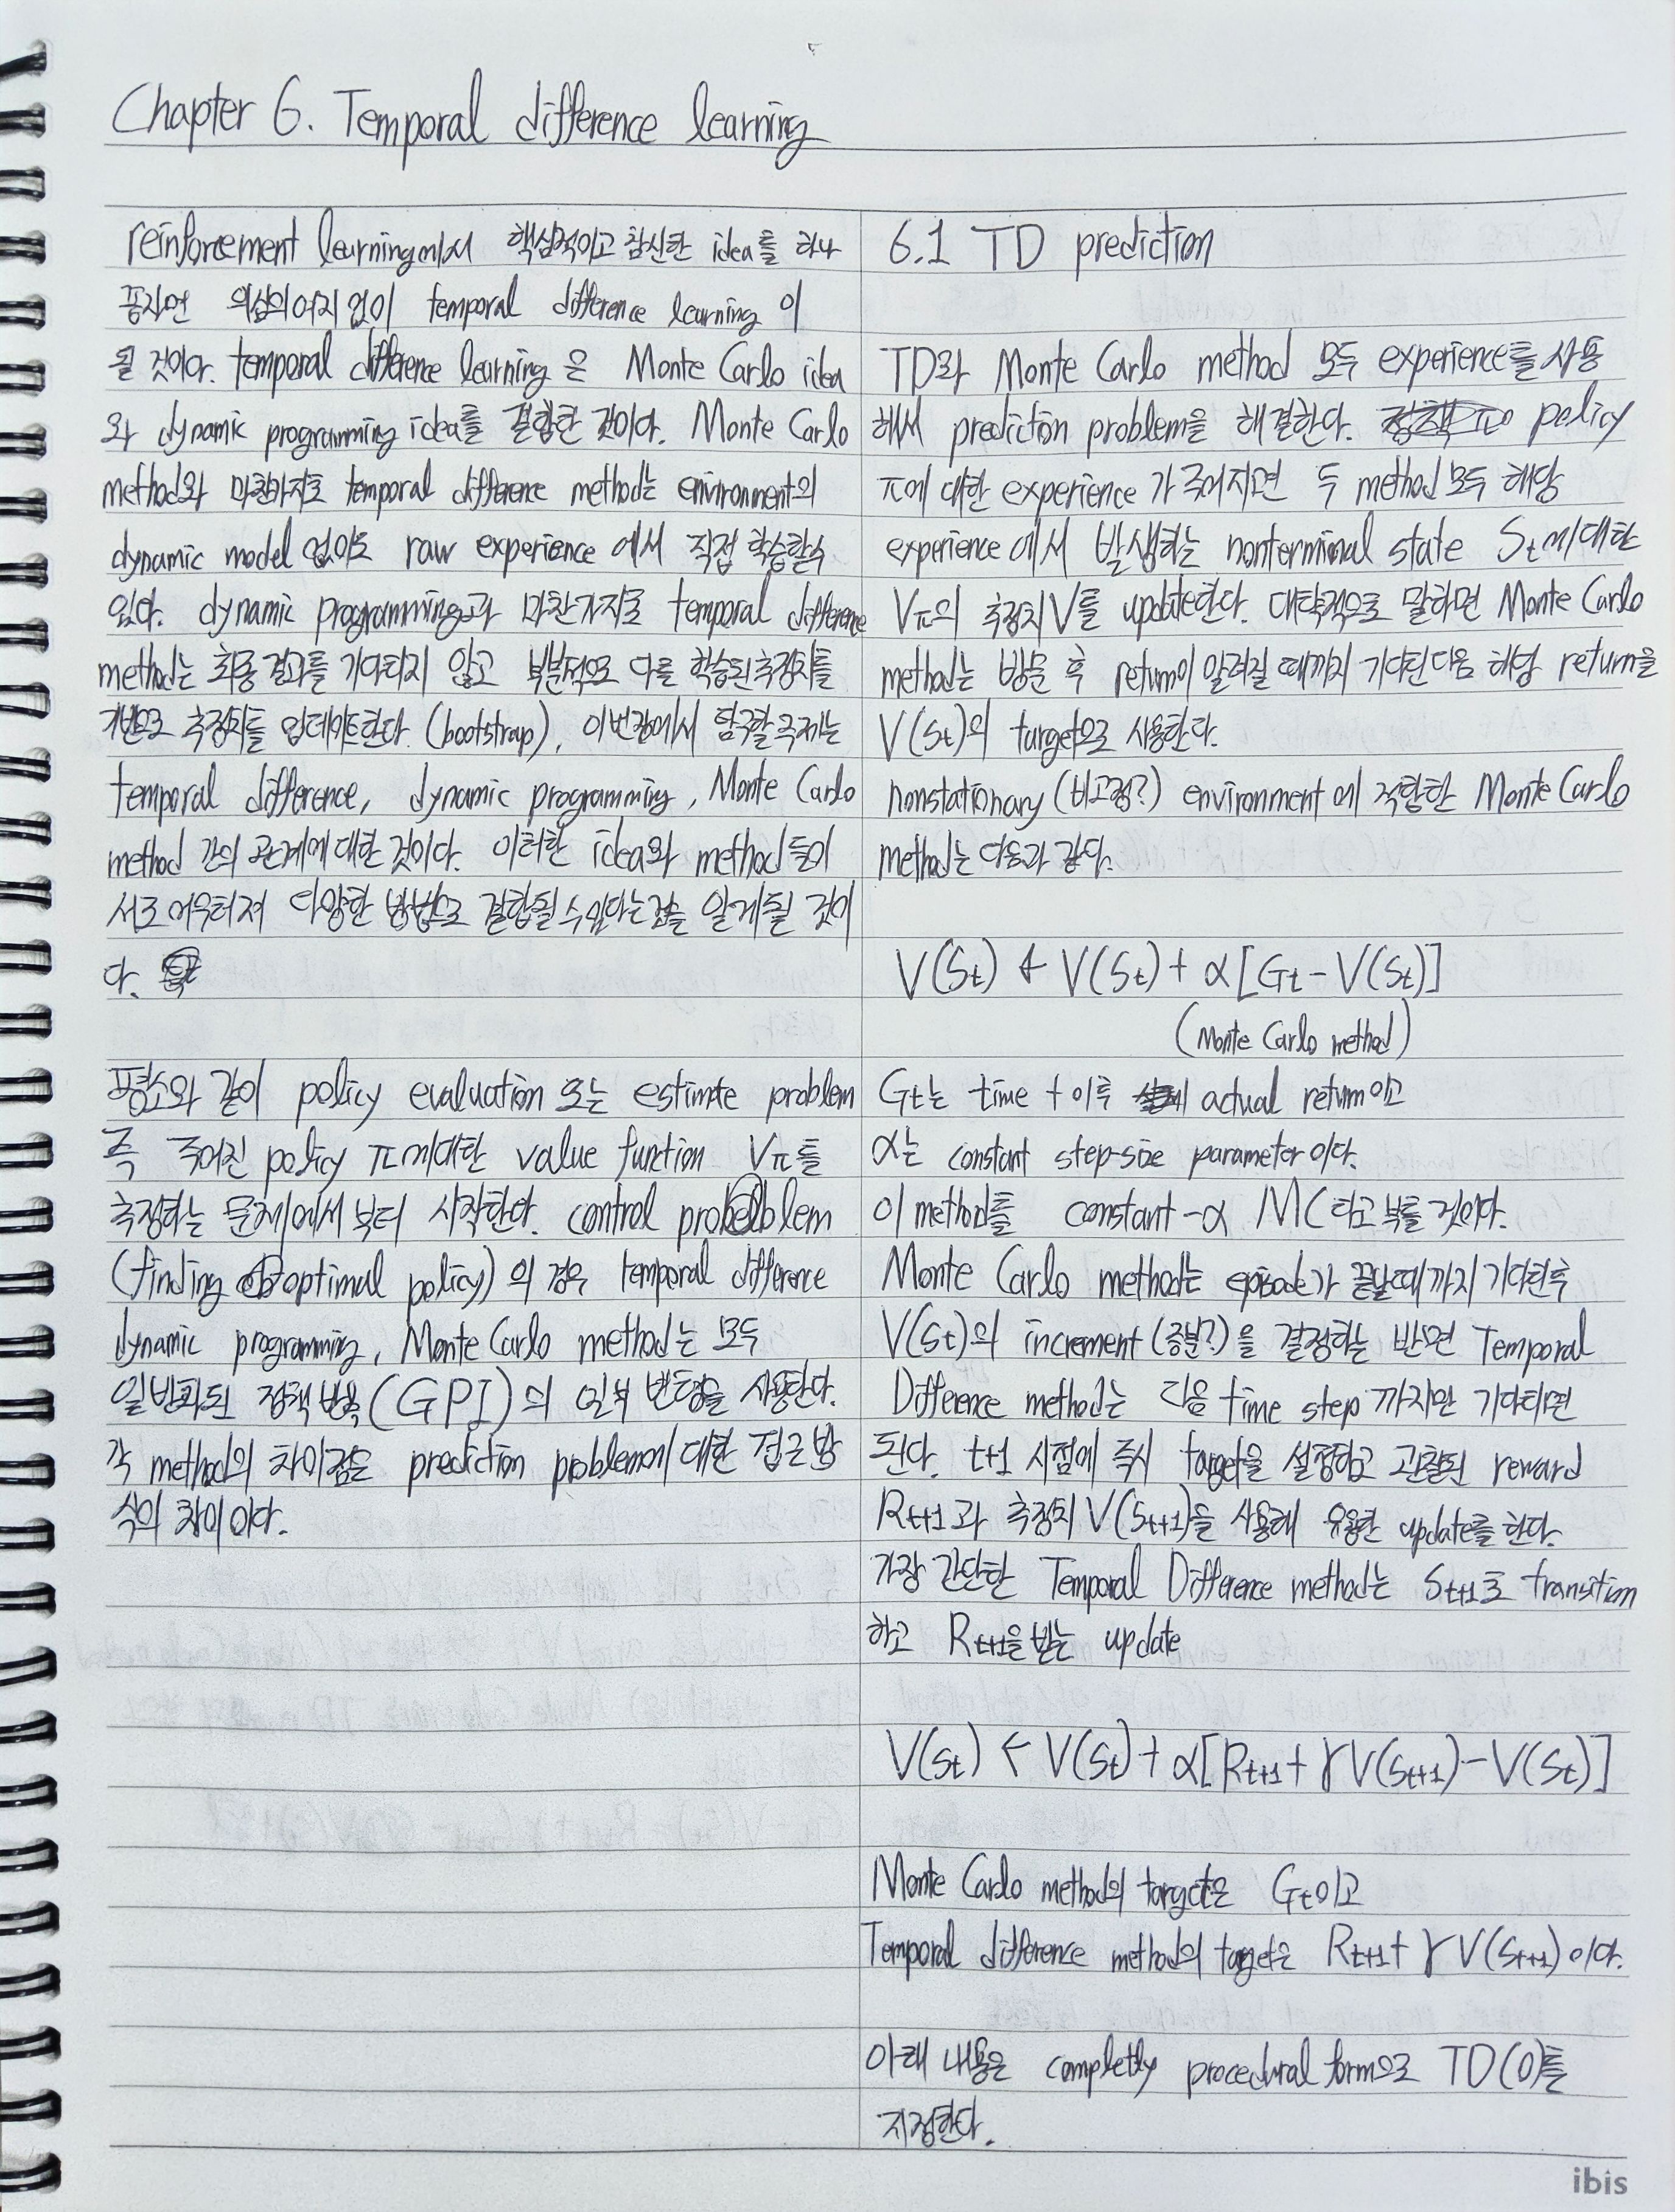 Chapter 6. Temporal difference learning
reinforcement learning에서 핵심적이고 참신한 idea를 하나
꼽자면 의심의여지 없이 temporal difference learning 이
될 것이다. temporal difference learning 은 Monte Carlo idea
와 dynamic programming idea를 결합한 것이다. Monte Carlo
method와 마찬가지로 temporal difference method는 environment의
dynamic model 없이도 raw experience 에서 직접 학습할수
있다. dynamic programming과 마찬가지로 temporal difference
method는 최종 결과를 기다리지 않고 부분적으로 다른 학습된 추정치를
기반으로 추정치를 업데이트한다. (bootstrap), 이번장에서 탐구할 주제는
temporal difference, dynamic programming, Monte Carlo
method 간의 관계에 대한 것이다. 이러한 idea와 method 들이
서로 어우러져 다양한 방법으로 결합될 수있다는것을 알게될 것이
다.
평소와 같이 policy evaluation 또는 estimate problem
즉 주어진 policy π에대한 value function Vπ를
추정하는 문제에서 부터 시작한다. control problem
(finding optimal policy) 의 경우 temporal difference
dynamic programming, Monte Carlo method는 모두
일반화된 정책 반복(GPI)의 일부 변형을 사용한다.
각 method의 차이점은 prediction problem에 대한 접근 방
식의 차이 이다.
6.1 TD prediction
TD와 Monte Carlo method 모두 experience를 사용
해서 prediction problem을 해결한다. policy
π에 대한 experience 가 주어지면 두 method 모두 해당
experience 에서 발생하는 nonterminal state St에대한
Vπ의 추정치 V를 update한다. 대략적으로 말하면 Monte Carlo
method는 방문 후 return이 알려질 때까지 기다린다음 해당 return을
V(St)의 target으로 사용한다.
nonstationary (비고정?) environment 에 적합한 Monte Carlo
method는 다음과 같다.
V(St) ← V(St) + α[Gt - V(St)]
(Monte Carlo method)
Gt는 time t 이후 actual return이고
α는 constant step-size parameter 이다.
이 method를 constant-α MC 라고 부를 것이다.
Monte Carlo method는 episode가 끝날때 까지 기다린후
V(St)의 increment (증분?)을 결정하는 반면 Temporal
Difference method는 다음 time step 까지만 기다리면
된다. t+1 시점에 즉시 target을 설정하고 관찰된 reward
Rt+1과 추정치 V(St+1)을 사용해 유용한 update를 한다.
가장 간단한 Temporal Difference method는 St+1로 transition
하고 Rt+1을 받는 update
V(St) ← V(St) + α[Rt+1 + γV(St+1) - V(St)]
Monte Carlo method의 target은 Gt이고
Temporal difference method의 target은 Rt+1 + γV(St+1) 이다.
아래 내용은 completly procedural form으로 TD(0)를
지정한다.
ibis